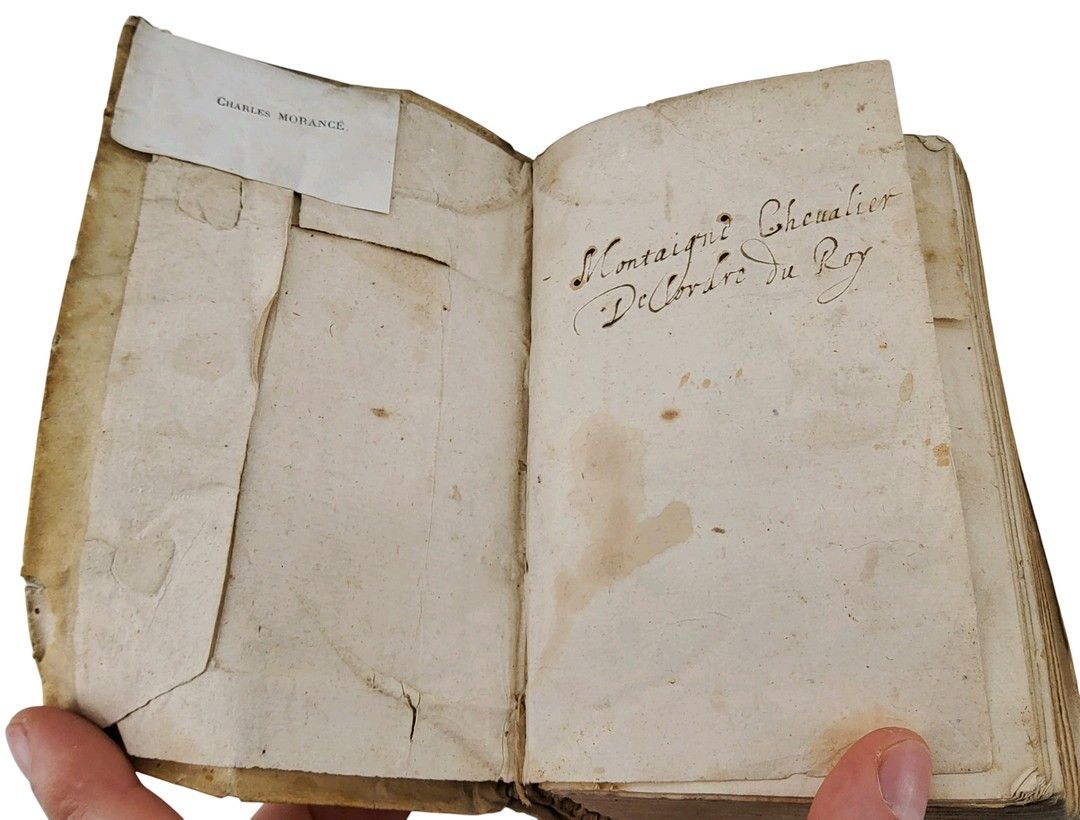 CHARLES MORANCÉ.
Montaigne Cheualier
De Lordre du Roy